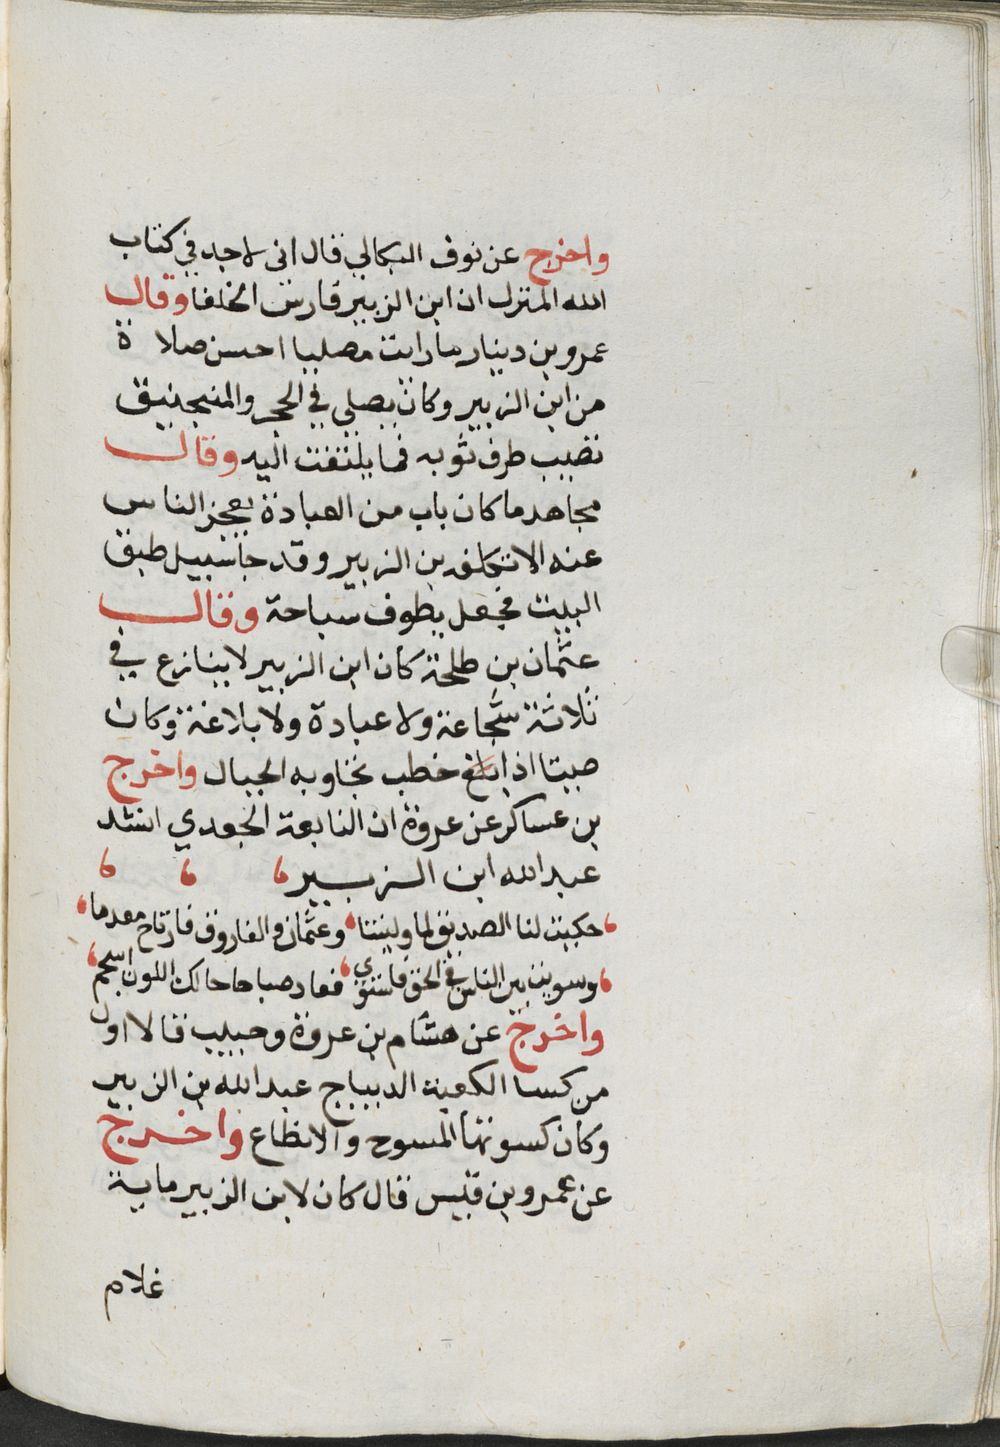 واخرج عن نوف البكالي قال انى لاجد في كتاب
الله المنزل ان ابن الزبير فارس الخلفا وقال
عمرو بن دينار ما رايت مصليا احسن صلا ة
من ابن الزبير وكان يصلي في الحجر والمنجنيق
تصيب طرف ثوبه فما يلتفت اليه وقال
مجاهد ما كان باب من العبادة يعجز الناس
عنه الا تكلفه بن الزبير وقد جا سيل طبق
البيت فجعل يطوف سباحة وقال
عثمان بن طلحة كان ابن الزبير لا ينازع في
ثلاثة شجاعة ولا عبادة ولا بلاغة وكان
صيتا اذا خطب تجاوبه الجبال واخرج
بن عساكر عن عروة ان النابعة الجعدي انشد
عبد الله ابن الزبير
حكيت لنا الصديق لما وليتنا وعثمان والفاروق فارتاح معدما
وسويت بين الناس في الحق فاستوي فعاد صباحا حالك اللون اسحم
واخرج عن هشام بن عروة وحبيب قالا اول
من كسا الكعبة الديباج عبد الله بن الزبير
وكان كسوتها المسوح والانطاع واخرج
عن عمرو بن قيس قال كان لابن الزبير ماية
غلام